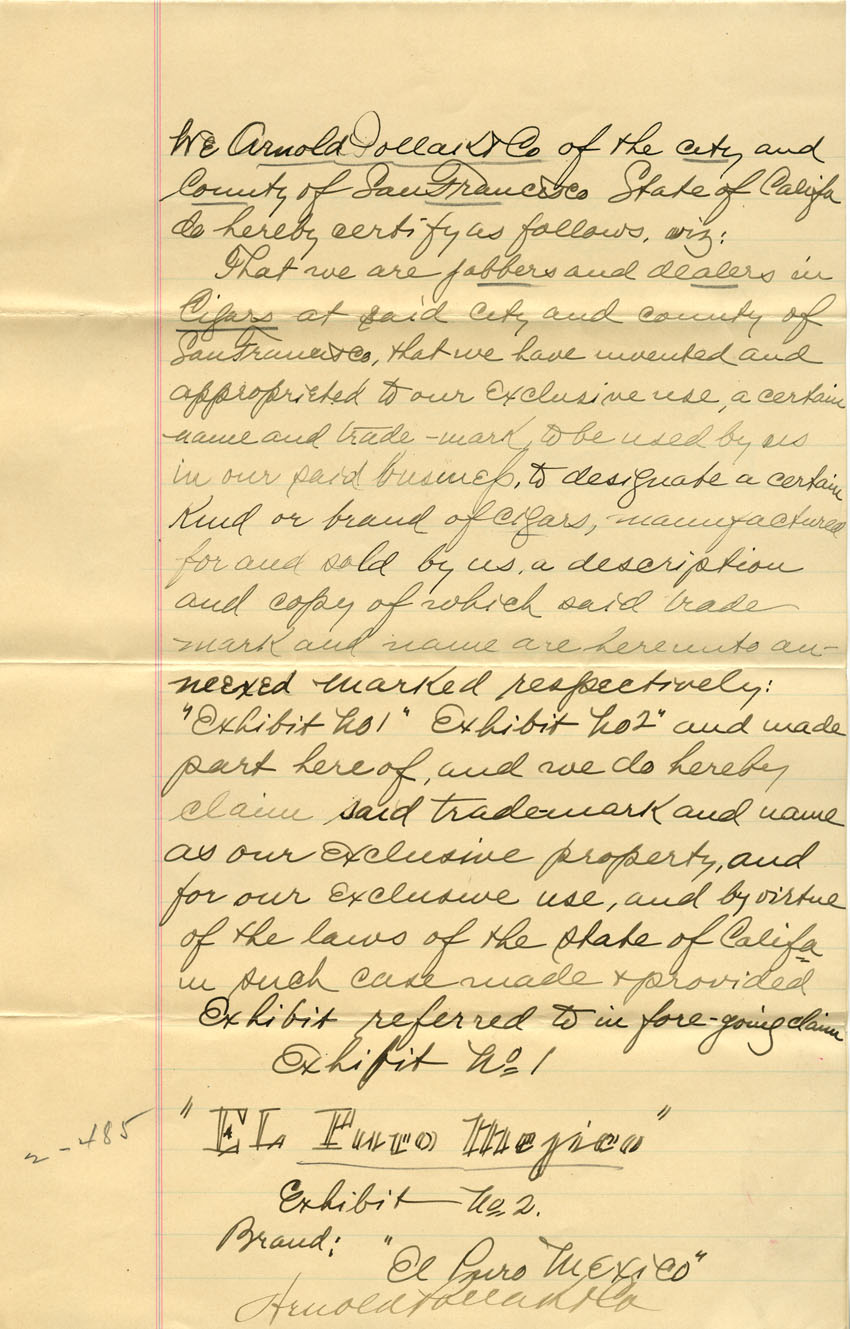 We Arnold Pollak & Co of the city and
County of San Francisco State of Califa
do hereby certify as follows, viz:
That we are jobbers and dealers in
Cigars at said city and county of
San Francisco, that we have invented and
approprieted to our Exclusive use, a certain
name and trade-mark, to be used by us
in our said business, to designate a certain
Kind or brand of cigars, manufactured
for and sold by us, a description
and copy of which said trade
mark and name are hereunto an-
nexed marked respectively:
"Exhibit No1" Exhibit No2" and made
part hereof, and we do hereby
claim said trade-mark and name
as our Exclusive property, and
for our Exclusive use, and by virtue
of the laws of the state of Califa
in such case made & provided
Exhibit referred to in fore-going claim
Exhibit No 1
"EL Puro Mejico"
2-485
Exhibit No 2.
Brand: "El Puro Mexico"
Arnold Pollak & Co